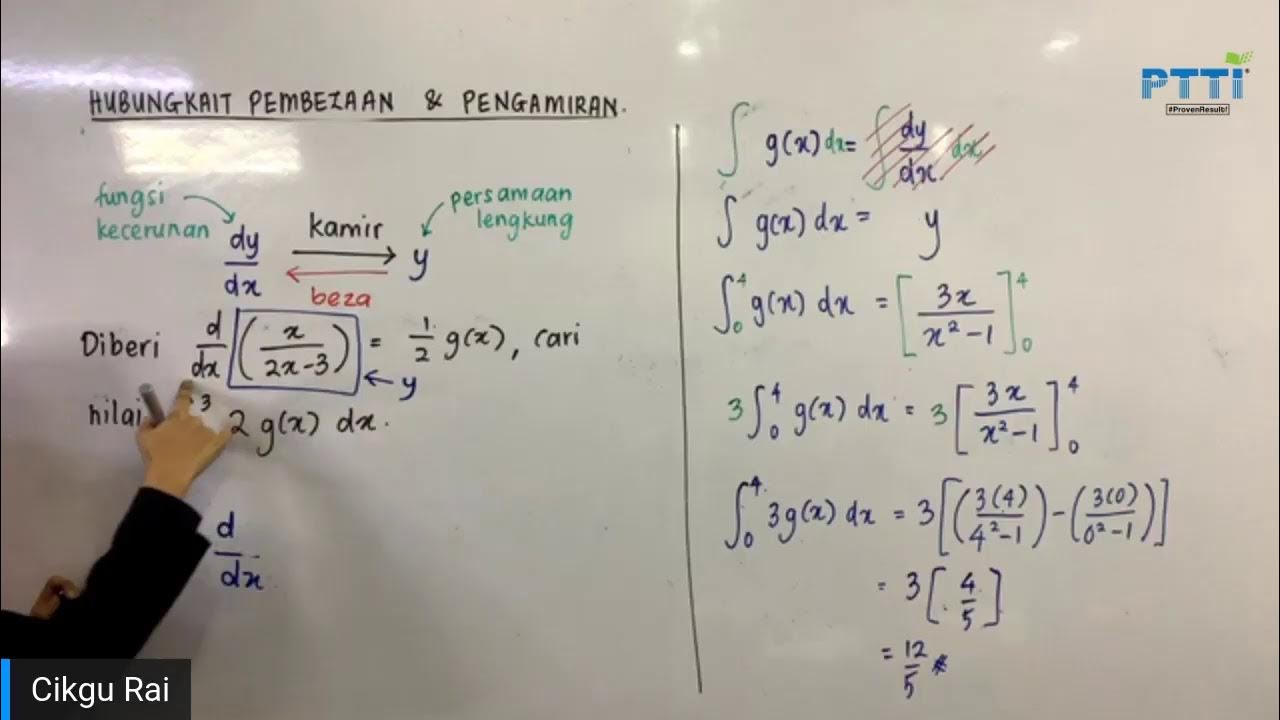 HUBUNGKAIT PEMBEZAAN & PENGAMIRAN.
fungsi
kecerunan
dy/dx
kamir
beza
y
persamaan
lengkung
Diberi d/dx (x/(2x-3)) = 1/2 g(x), cari
y
3
2 g(x) dx.
d/dx
∫ g(x) dx = ∫ dy/dx dx
∫ g(x) dx = y
∫₀⁴ g(x) dx = [3x/(x²-1)]₀⁴
3∫₀⁴ g(x) dx = 3[3x/(x²-1)]₀⁴
∫₀⁴ 3g(x) dx = 3[(3(4)/(4²-1)) - (3(0)/(0²-1))]
= 3[4/5]
= 12/5
PTTI
#ProvenResult!
Cikgu Rai